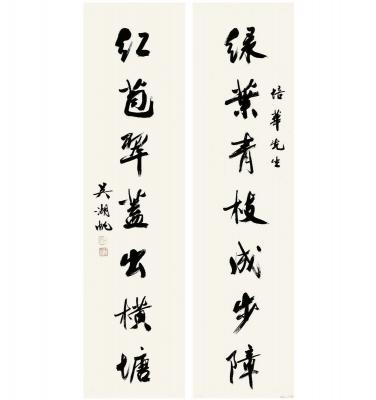 绿叶青枝成步障
培华先生
红苞翠盖出横塘
吴湖帆